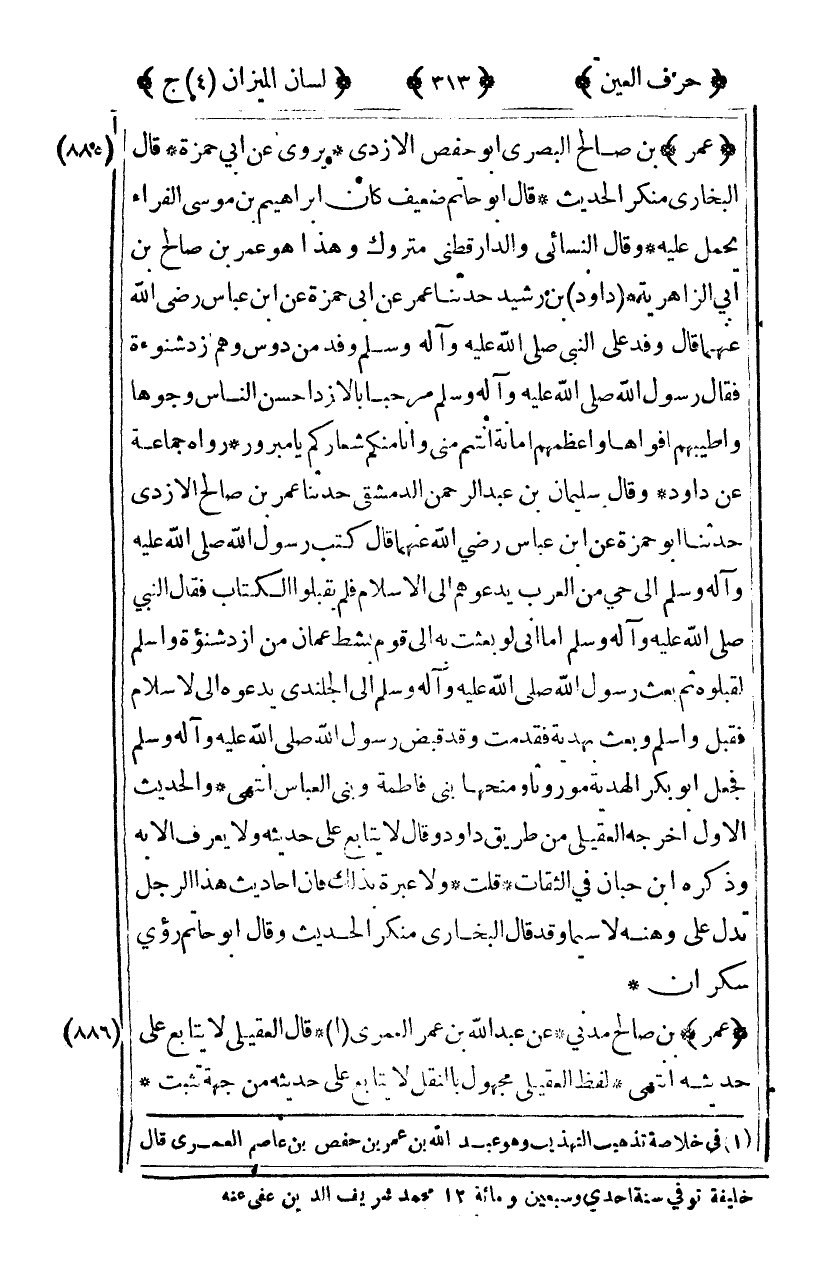 ﴿ حرف العين ﴾ ﴿ ٣١٣ ﴾ ﴿ لسان الميزان (٤) ج ﴾
(٨٨٥) ﴿ عمر ﴾ بن صالح البصرى ابو حفص الازدى * يروى عن ابي حمزة * قال
البخارى منكر الحديث * قال ابو حاتم ضعيف كان ابراهيم بن موسى الفراء
يحمل عليه * وقال النسائى والدارقطنى متروك وهذا هو عمر بن صالح بن
ابي الزاهرية * (داود) بن رشيد حدثنا عمر عن ابى حمزة عن ابن عباس رضى الله
عنهما قال وفد على النبي صلى الله عليه وآله وسلم وفد من دوس وهم ازد شنوءة
فقال رسول الله صلى الله عليه وآله وسلم مرحبا بالازد احسن الناس وجوها
واطيبهم افواها واعظمهم امانة انتم منى وانا منكم شعاركم يا مبرور * رواه جماعة
عن داود * وقال سليمان بن عبدالرحمن الدمشقى حدثنا عمر بن صالح الازدى
حدثنا ابو حمزة عن ابن عباس رضي الله عنهما قال كتب رسول الله صلى الله عليه
وآله وسلم الى حي من العرب يدعوهم الى الاسلام فلم يقبلوا الكتاب فقال النبي
صلى الله عليه وآله وسلم اما انى لو بعثت به الى قوم بشط عمان من ازد شنؤة واسلم
لقبلوه ثم بعث رسول الله صلى الله عليه وآله وسلم الى الجلندى يدعوه الى لاسلام
فقبل واسلم وبعث بهدية فقدمت وقد قبض رسول الله صلى الله عليه وآله وسلم
فجعل ابو بكر الهدية موروثا ومنحها بنى فاطمة وبنى العباس انتهى * والحديث
الاول اخرجه العقيلى من طريق داود وقال لا يتابع على حديثه ولا يعرف الا به
وذكره ابن حبان في الثقات * قلت * ولا عبرة بذلك فان احاديث هذا الرجل
تدل على وهنه لا سيما وقد قال البخارى منكر الحديث وقال ابو حاتم رؤي
سكران *
(٨٨٦) ﴿ عمر ﴾ بن صالح مدني * عن عبدالله بن عمر العمرى (١) * قال العقيلى لا يتابع على
حديثه انتهى * لفظ العقيلى مجهول بالنقل لا يتابع على حديثه من جهة تثبت *
(١) في خلاصة تذهيب التهذيب وهو عبد الله بن عمر بن حفص بن عاصم العمرى قال
خليفة توفي سنة احدي وسبعين ومائة ١٢ محمد شريف الدين عفى عنه